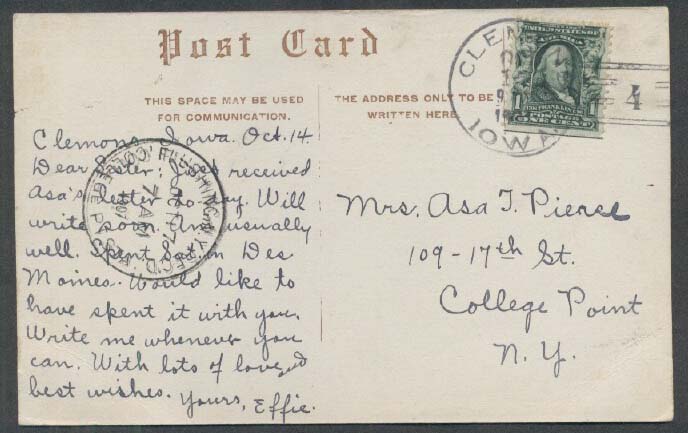 Post Card
THIS SPACE MAY BE USED
FOR COMMUNICATION.
THE ADDRESS ONLY TO BE
WRITTEN HERE.
CLEM
IOWA
4
UNITED STATES OF
FRANKLIN
1 POSTAGE 1
Clemons, Iowa. Oct. 14
Dear received
Asa's letter to-day. Will
write soon. Am usually
well. Spent in Des
Moines. Would like to
have spent it with you.
Write me whenever you
can. With lots of love and
best wishes.
Yours, Effie.
FLUSHING, N.Y. REC'D.
7 AM
1907
COLLEGE P'T. STA.
Mrs. Asa T. Pierce
109-17th St.
College Point
N. Y.